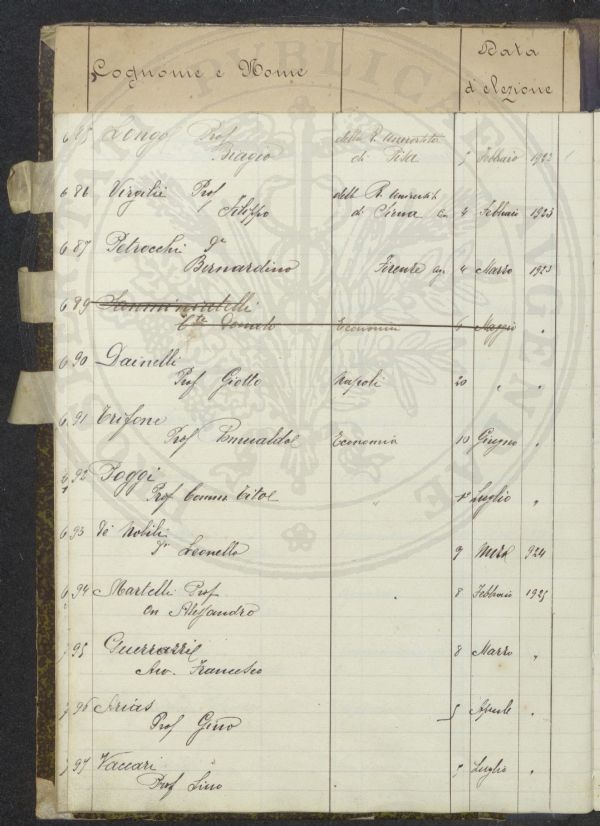 Cognome e Nome
Data
d'elezione
Longo Prof. della R. Università
Biagio di Pisa 5 Febbraio 1923
6 86 Virgilii Prof della R. Università
Filippo di Siena 4 Febbraio 1923
6 87 Petrocchi Dr
Bernardino Firenze 4 Marzo 1923
6 89 Sanminiatelli
Cte Donato Economia 6 Maggio "
6 90 Dainelli
Prof Giotto Napoli 20 " "
6 91 Trifone
Prof Romualdo Economia 10 Giugno "
6 92 Poggi
Prof Comm Tito " 1° Luglio "
6 93 De Nobili
Dr Leonello 9 924
6 94 Martelli Prof
On Alessandro " 8 Febbraio 1925
95 Guerrazzi
Avv. Francesco 8 Marzo "
96 Arias
Prof Gino 5 Aprile "
97 Vaccari
Prof Lino 5 Luglio "